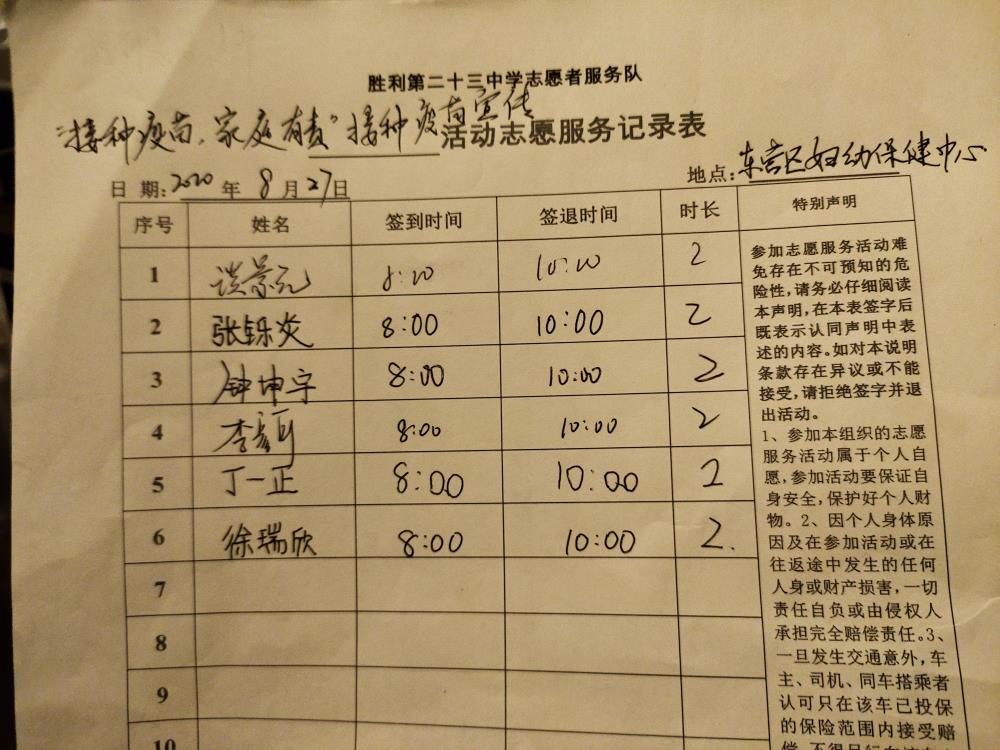 胜利第二十三中学志愿者服务队
“接种疫苗,家庭有责”接种疫苗宣传活动志愿服务记录表
日 期:2020 年 8 月 27日 地点:东营区妇幼保健中心
序号 姓名 签到时间 签退时间 时长 特别声明
1 谈景元 8:00 10:00 2
2 张铄炎 8:00 10:00 2
3 钟坤宇 8:00 10:00 2
4 李 8:00 10:00 2
5 丁一正 8:00 10:00 2
6 徐瑞欣 8:00 10:00 2.
7
8
9
10
参加志愿服务活动难
免存在不可预知的危
险性,请务必仔细阅读
本声明,在本表签字后
既表示认同声明中表
述的内容。如对本说明
条款存在异议或不能
接受,请拒绝签字并退
出活动。
1、参加本组织的志愿
服务活动属于个人自
愿,参加活动要保证自
身安全,保护好个人财
物。2、因个人身体原
因及在参加活动或在
往返途中发生的任何
人身或财产损害,一切
责任自负或由侵权人
承担完全赔偿责任。3、
一旦发生交通意外,车
主、司机、同车搭乘者
认可只在该车已投保
的保险范围内接受赔
偿,不得另行向该车